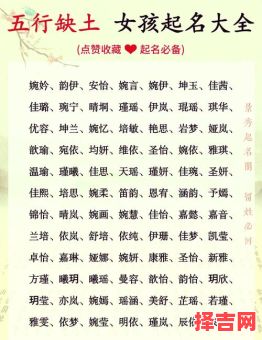 五行缺土 女孩起名大全
(点赞收藏❤起名必备)
婉妗、韵伊、安怡、婉言、婉伊、坤玉、佳茜、
佳璐、琬宁、晴垌、瑾瑶、伊岚、琨瑶、琪华、
优容、坤兰、婉忆、培敏、艳思、岩梦、娅岚、
歆瑜、宛依、均妍、维依、圣怡、婉依、雅琪、
温瑜、瑾曦、佳恩、天瑶、瑾妍、佳琬、圣妍、
佳熙、培恩、婉柔、笛韵、恩有、涵韵、予嫣、
锦怡、晴岚、婉画、婉慧、佳怡、嘉懿、嘉音、
兰培、依岚、舒培、依纯、伊珊、佳梦、凯莹、
卓怡、嘉琳、娅娜、婉妍、康雅、圣怡、新雅、
方瑾、曦玥、曦瑶、曼容、歆怡、韵怡、玥欣、
玥莹、亦岚、婉嫣、瑶涵、美舒、芷瑶、若瑾、
雅雯、依梦、婉莹、明依、瑾岚、辰依
择吉网
zejiwang.com